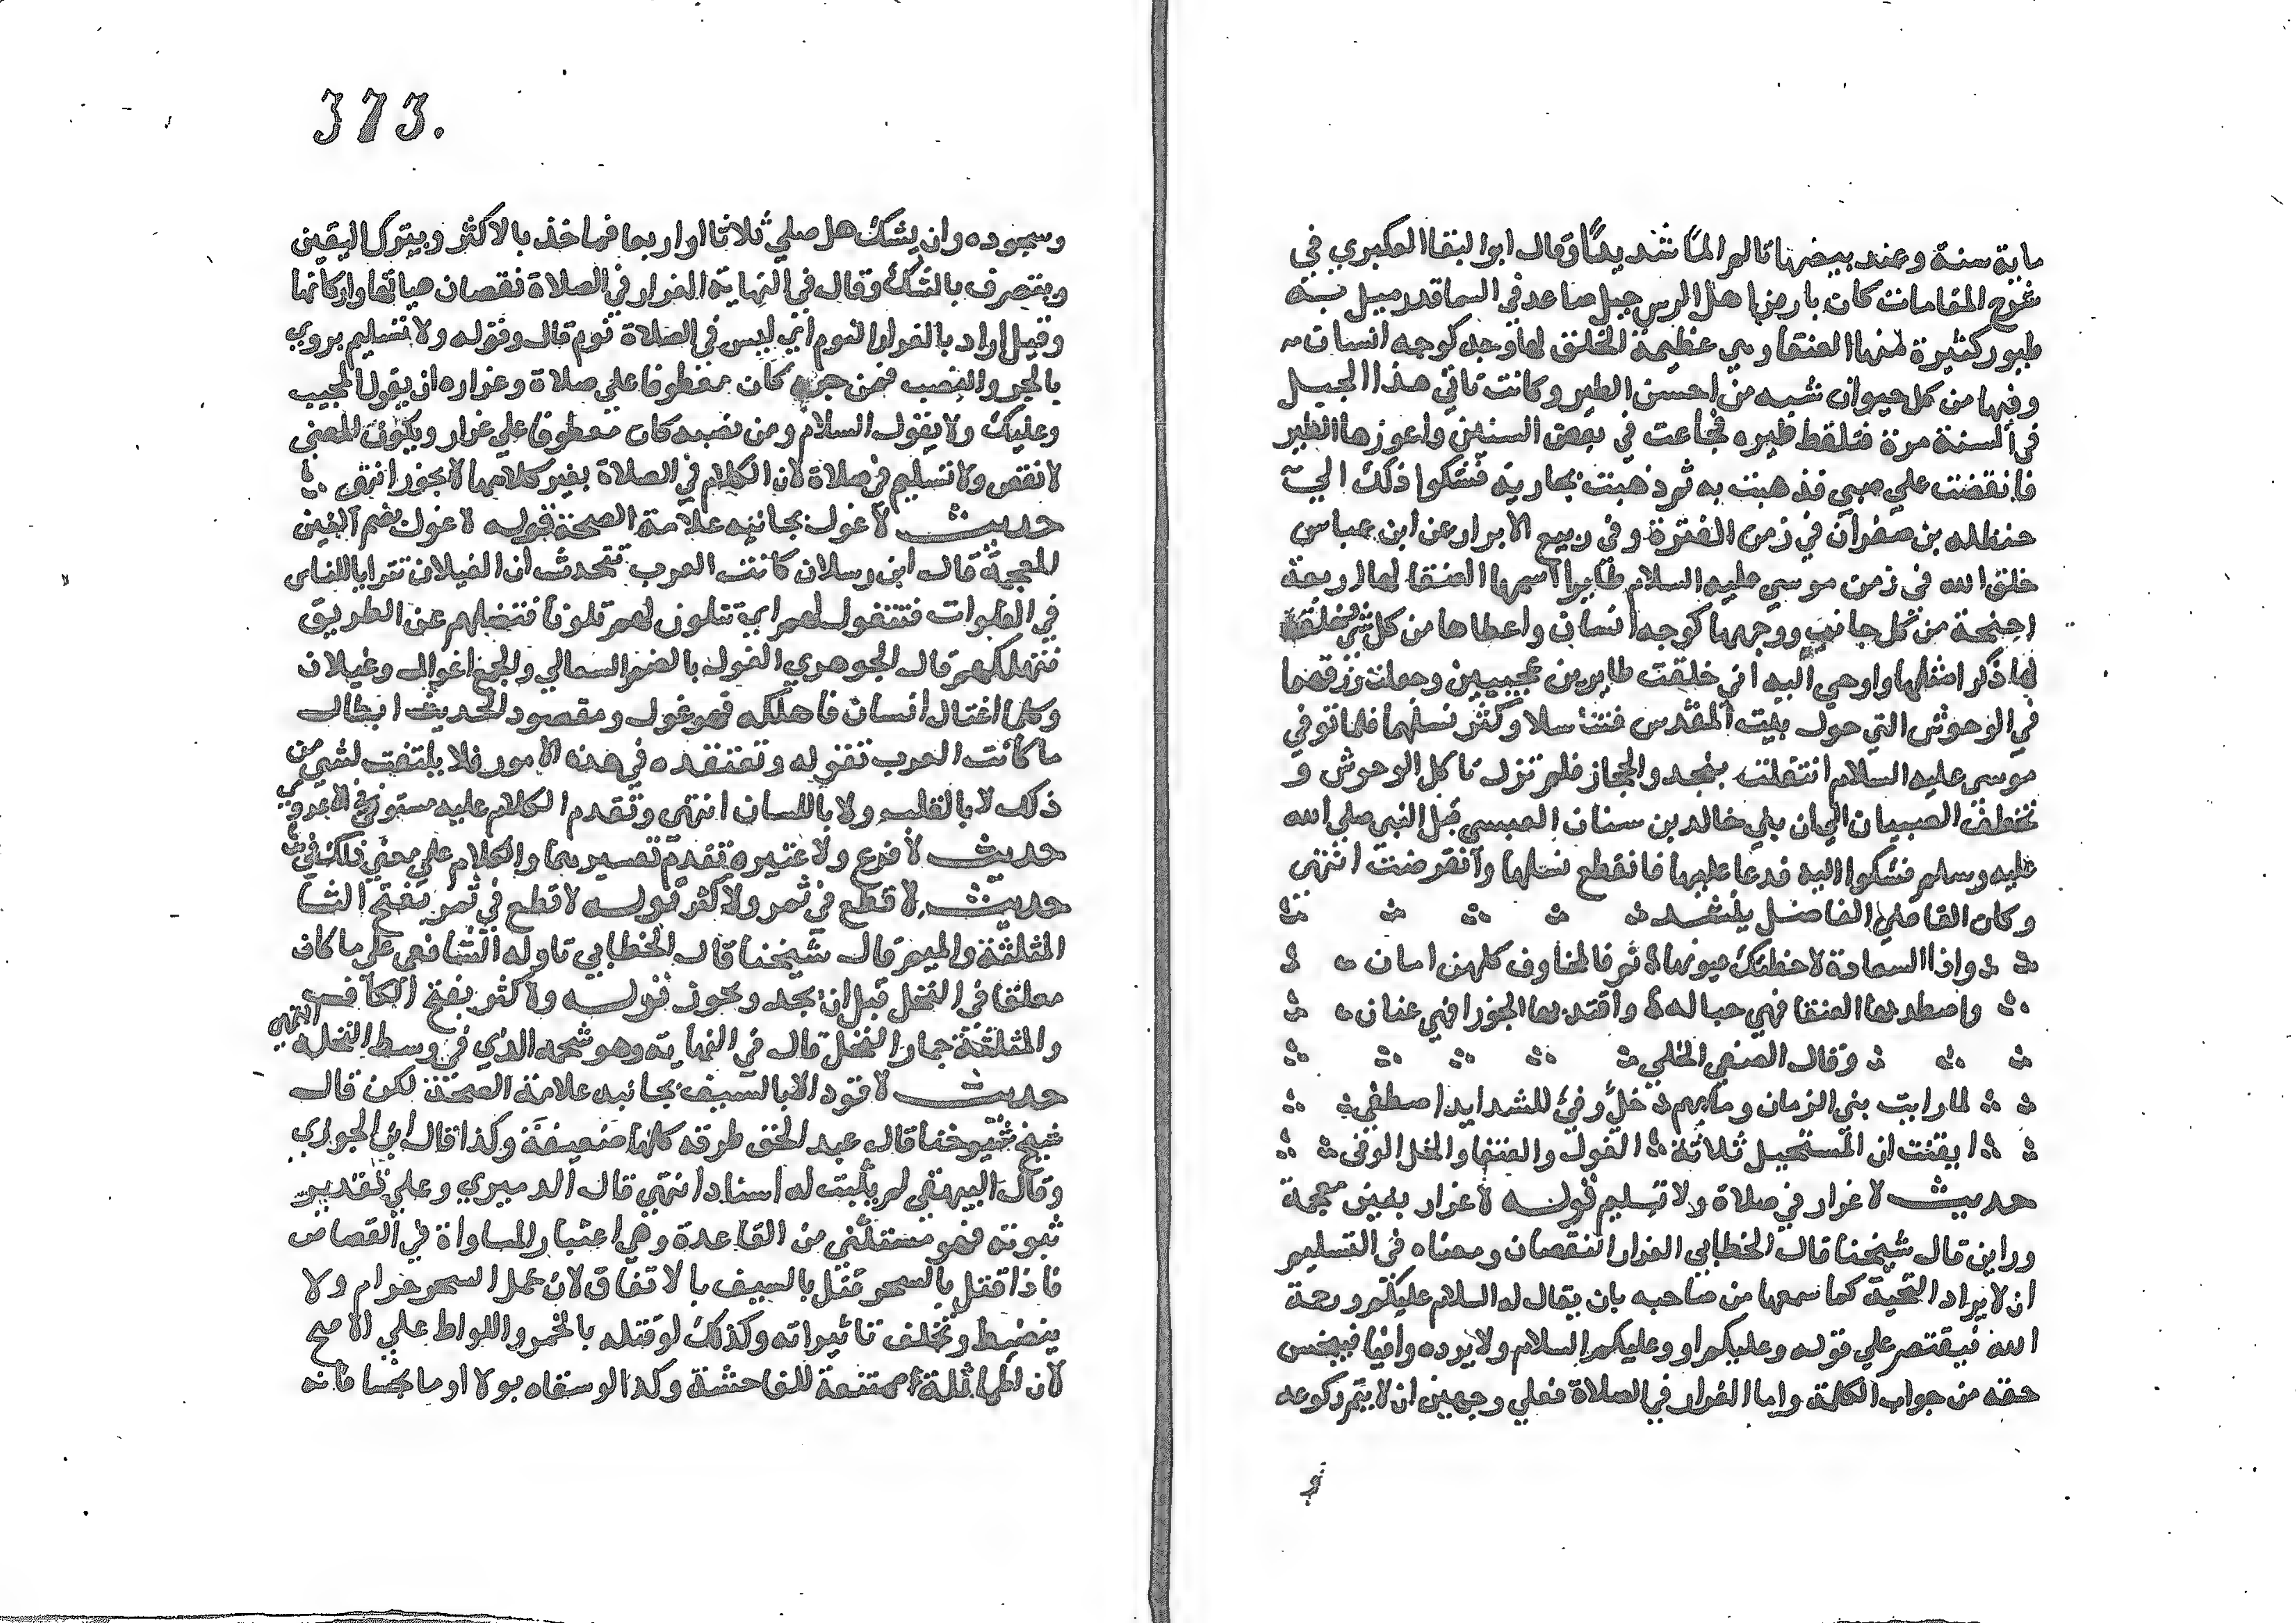 ماية سنة وعند بيضها تالم الما شديدا وقال ابوا لبقا العكبري في
شرح المقامات كان بارض اهل الرس جبل صاعد في السما قدر ميل به
طيور كثيرة منها العنقا وهي عظيمة الخلق لها وجه كوجه انسان
وفيها من كل حيوان شبه من احسن الطير وكانت تاتي هذا الجبل
في السنة مرة فتلقط طيره فجاعت في بعض السنين واعوزها الطير
فانقضت علي صبي فذهبت به ثم ذهبت بجارية فشكوا ذلك الي
حنظله بن صفوان في زمن الفترة وفي ربيع الابرار عن ابن عباس
خلق الله في زمن موسي عليه السلام طايرا اسمها العنقا لها اربعة
اجنحة من كل جانب ووجهها كوجه انسان واعطاها من كل شي وخلق
لها ذكرا مثلها واوحي اليه اني خلقت طايرين عجيبين وجعلت رزقهما
في الوحوش التي حول بيت المقدس فتناسلا وكثر نسلهما فلما توفي
موسي عليه السلام انتقلت بنجد والحجاز فلم تزل تاكل الوحوش و
تخطف الصبيان الي ان بني خالد بن سنان العبسي قبل النبي صلي الله
عليه وسلم فشكوا اليه فدعا عليها فانقطع نسلها وانقرضت انتهي
وكان القاضي الفاضل ينشد
واذا السعادة لاحظتك عيونها ثم فالمخاوف كلهن امان
واصطد بها العنقا فهي حباله واقتد بها الجوزا فهي عنان
وقال الصفي الحلي
لما رايت بني الزمان وما بهم خل وفي للشدايد اصطفي
ايقنت ان المستحيل ثلاثة الغول والعنقا والخل الوفي
حديث لا غرار في صلاة ولا تسليم قوله لا غرار بغين معجمة
وراين قال شيخنا قال الخطابي الغرار النقصان ومعناه في التسليم
ان لا يراد التحية كما سمعها من صاحبه بان يقال له السلام عليكم ورحمة
الله فيقتصر علي قوله وعليكم او وعليكم السلام ولا يرده وافيا فيبخس
حقه من جواب الكلمة واما الغرار في الصلاة فعلي وجهين ان لا يتم ركوعه
373.
وسجوده وان يشك هل صلي ثلاثا او اربعا فياخذ بالاكثر ويترك اليقين
وينصرف بالشك وقال في النهاية الغرار في الصلاة نقصان هياتها واركانها
وقيل اراد بالغرار النوم اي ليس في الصلاة نوم قال وقوله ولا تسليم يروي
بالجر والنصب فمن جره كان معطوفا علي صلاة وغراره ان يقول المجيب
وعليك ولا يقول السلام ومن نصبه كان معطوفا علي غرار ويكون المعني
لا نقص ولا تسليم في صلاة لان الكلام في الصلاة بغير كلامها لا يجوز انتهي
حديث لا غول بجانبه علامة الصحة قوله لا غول بضم الغين
المعجمة قال ابن رسلان كانت العرب تتحدث ان الغيلان تترايا للناس
في الفلوات فتتغول لهم اي تتلون لهم تلونا فتضلهم عن الطريق
فتهلكهم قال الجوهري الغول بالضم السعالي والجمع اغوال وغيلان
وكلما اغتال انسان فاهلكه فهو غول ومقصود الحديث ابطال
ما كانت العرب تقوله وتعتقده في هذه الامور فلا يلتفت لشي من
ذلك لا بالقلب ولا باللسان انتهي وتقدم الكلام عليه مستوفي في لا عدوي
حديث لا فرع ولا عتيرة تقدم تفسيرهما والكلام علي معني ذلك في
حديث لا قطع في ثمر ولا كثر قوله لا قطع في ثمر بفتح الثا
المثلثة والميم قال شيخنا قال الخطابي تاوله الشافعي علي ما كان
معلقا في النخل قبل ان يجد ويحوز قوله ولا كثر بفتح الكاف
والمثلثة جمار النخل قال في النهاية وهو شحمه الذي في وسط النخلة انتهي
حديث لا قود الا بالسيف بجانبه علامة الصحة لكن قال
شيخ شيوخنا قال عبد الحق طرقه كلها ضعيفة وكذا قال ابن الجوزي
وقال البيهقي لم يثبت له اسناد انتهي قال الدميري وعلي تقدير
ثبوته فهو مستثني من القاعدة وهي اعتبار المساواة في القصاص
فاذا قتل بالسحر قتل بالسيف بالاتفاق لان عمل السحر حرام ولا
ينضبط وتختلف تاثيراته وكذلك لو قتله بالخمر واللواط علي الاصح
لان المماثلة ممتنعة للفاحشة وكذا لو سقاه بولا او ما نجسا فانه